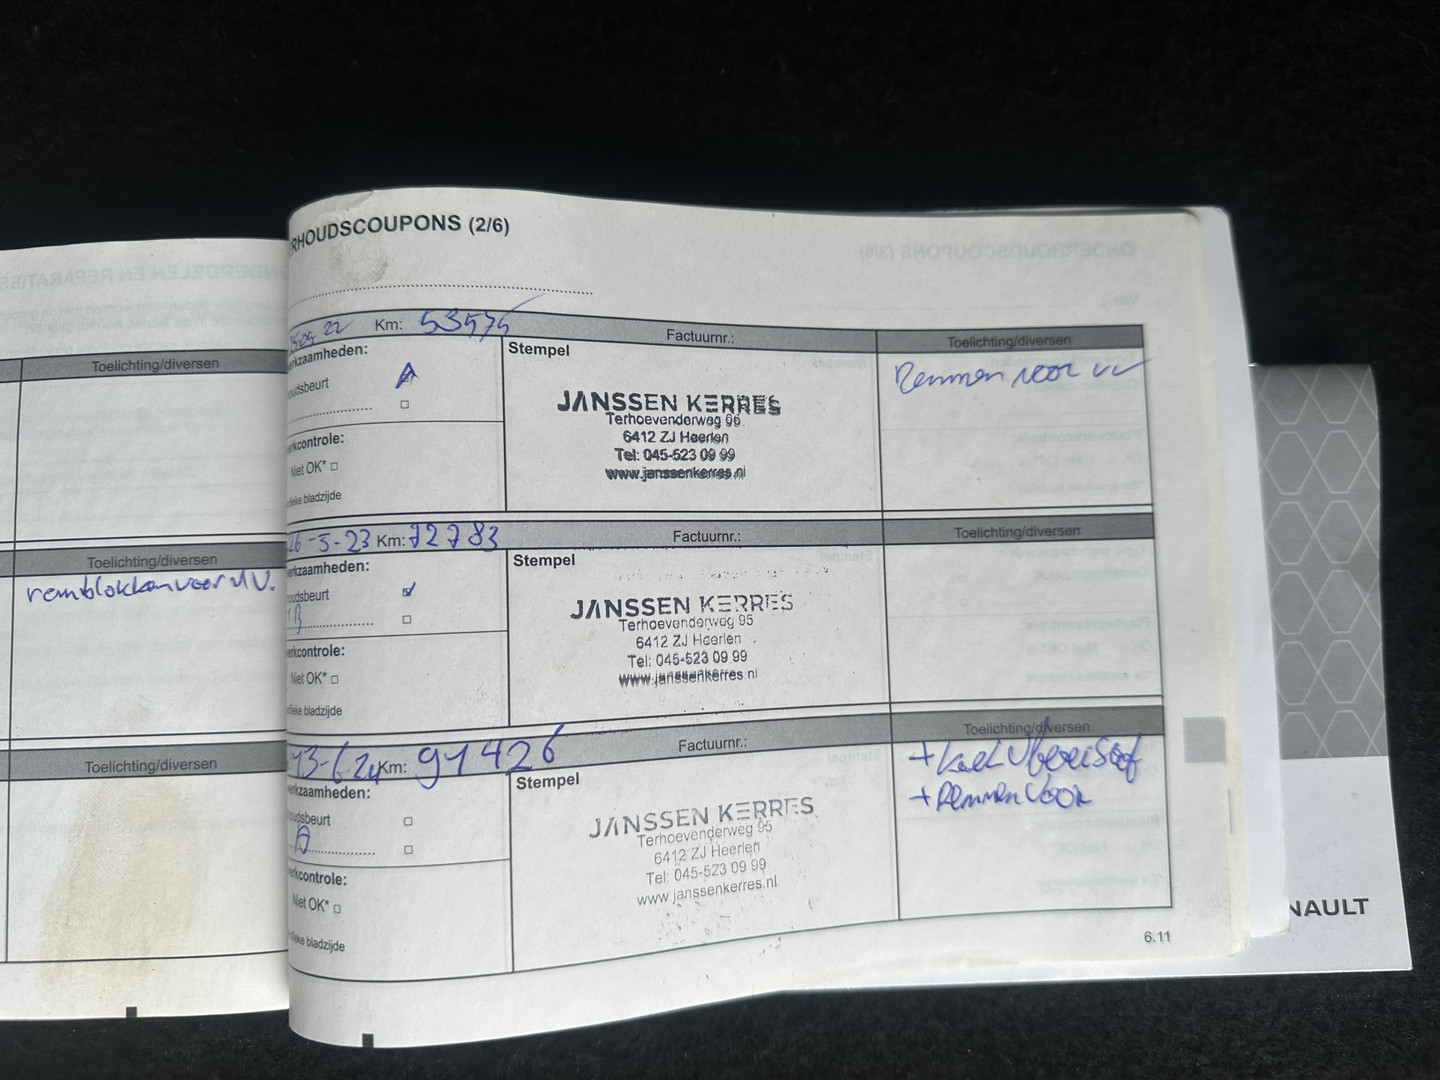 RHOUDSCOUPONS (2/6)
Toelichting/diversen
Toelichting/diversen
remblokken voor VV.
Toelichting/diversen
Km: 53575
Factuurnr.:
Toelichting/diversen
rkzaamheden:
oudsbeurt
A
Stempel
JANSSEN KERRES
Terhoevenderweg 95
6412 ZJ Heerlen
Tel: 045-523 09 99
www.janssenkerres.nl
Remmen voor vv
rkcontrole:
Niet OK*
ieke bladzijde
26-5-23 Km: 72783
Factuurnr.:
Toelichting/diversen
rkzaamheden:
oudsbeurt
B
Stempel
JANSSEN KERRES
Terhoevenderweg 95
6412 ZJ Heerlen
Tel: 045-523 09 99
www.janssenkerres.nl
rkcontrole:
Niet OK*
ieke bladzijde
13-6-24 Km: 91426
Factuurnr.:
Toelichting/diversen
rkzaamheden:
oudsbeurt
A
Stempel
JANSSEN KERRES
Terhoevenderweg 95
6412 ZJ Heerlen
Tel: 045-523 09 99
www.janssenkerres.nl
+ koelvloeistof
+ Remmen voor
rkcontrole:
Niet OK*
ieke bladzijde
6.11
NAULT